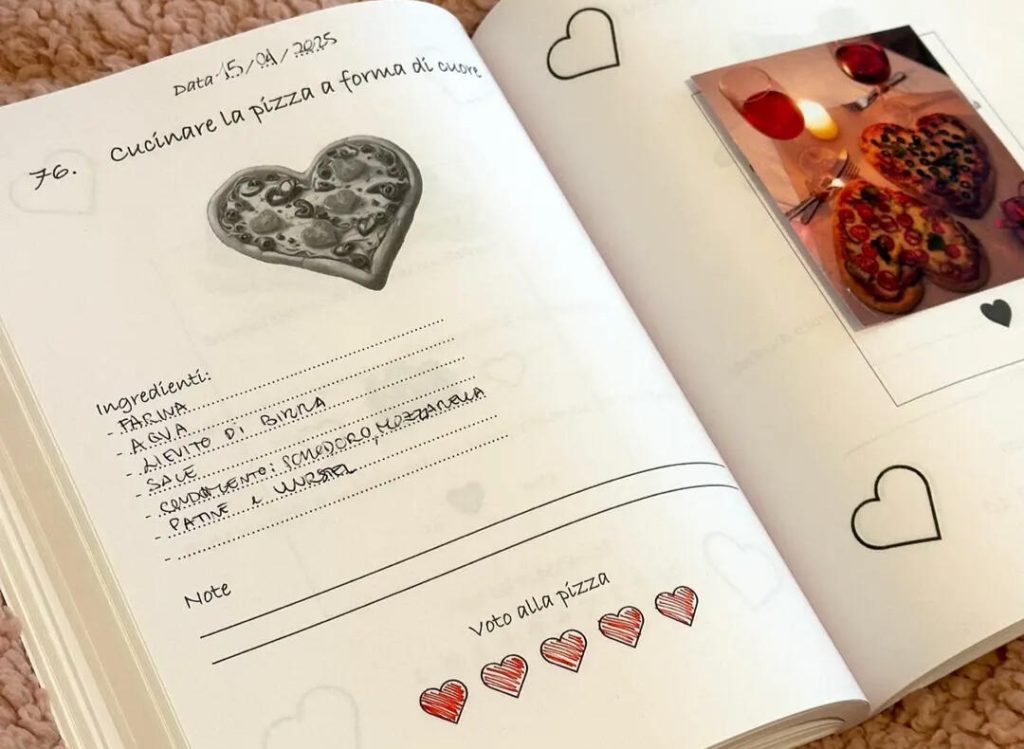 Data 15/04/2025
76. Cucinare la pizza a forma di cuore
Ingredienti:
- FARINA
- AQUA
- LIEVITO DI BIRRA
- SALE
- CONDIMENTO: POMODORO, MOZZARELLA
- PATINE E WURSTEL
-
Note
Voto alla pizza